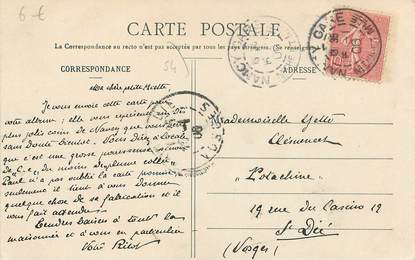 6-€
CARTE POSTALE
La Correspondance au recto n'est pas acceptée par tous les pays étrangers. (Se renseigner
CORRESPONDANCE
ADRESSE
54
NANCY
NANCY GARE
Ma chère petite Yvette
Je vous envoie cette carte pour
votre album; elle vous représente un des
plus jolis coins de Nancy que vous
sans doute bientôt. Vous direz à
que c'est une grosse paresseuse
du moins
Paul n'a pas oublié la carte promise
seulement il tient à vous donner
quelque chose de sa fabrication et il
vous fait attendre.
Tendres baisers à toute la
maisonnée et à vous en particulier
Votre
Mademoiselle
Clémencet
"Potachine"
19 rue du Casino 19
St Dié
(Vosges)